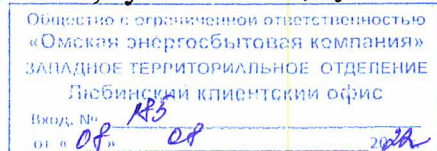 Общество с ограниченной ответственностью
«Омская энергосбытовая компания»
ЗАПАДНОЕ ТЕРРИТОРИАЛЬНОЕ ОТДЕЛЕНИЕ
Любинский клиентский офис
Вход. № 185
от « 08 » 08 2022